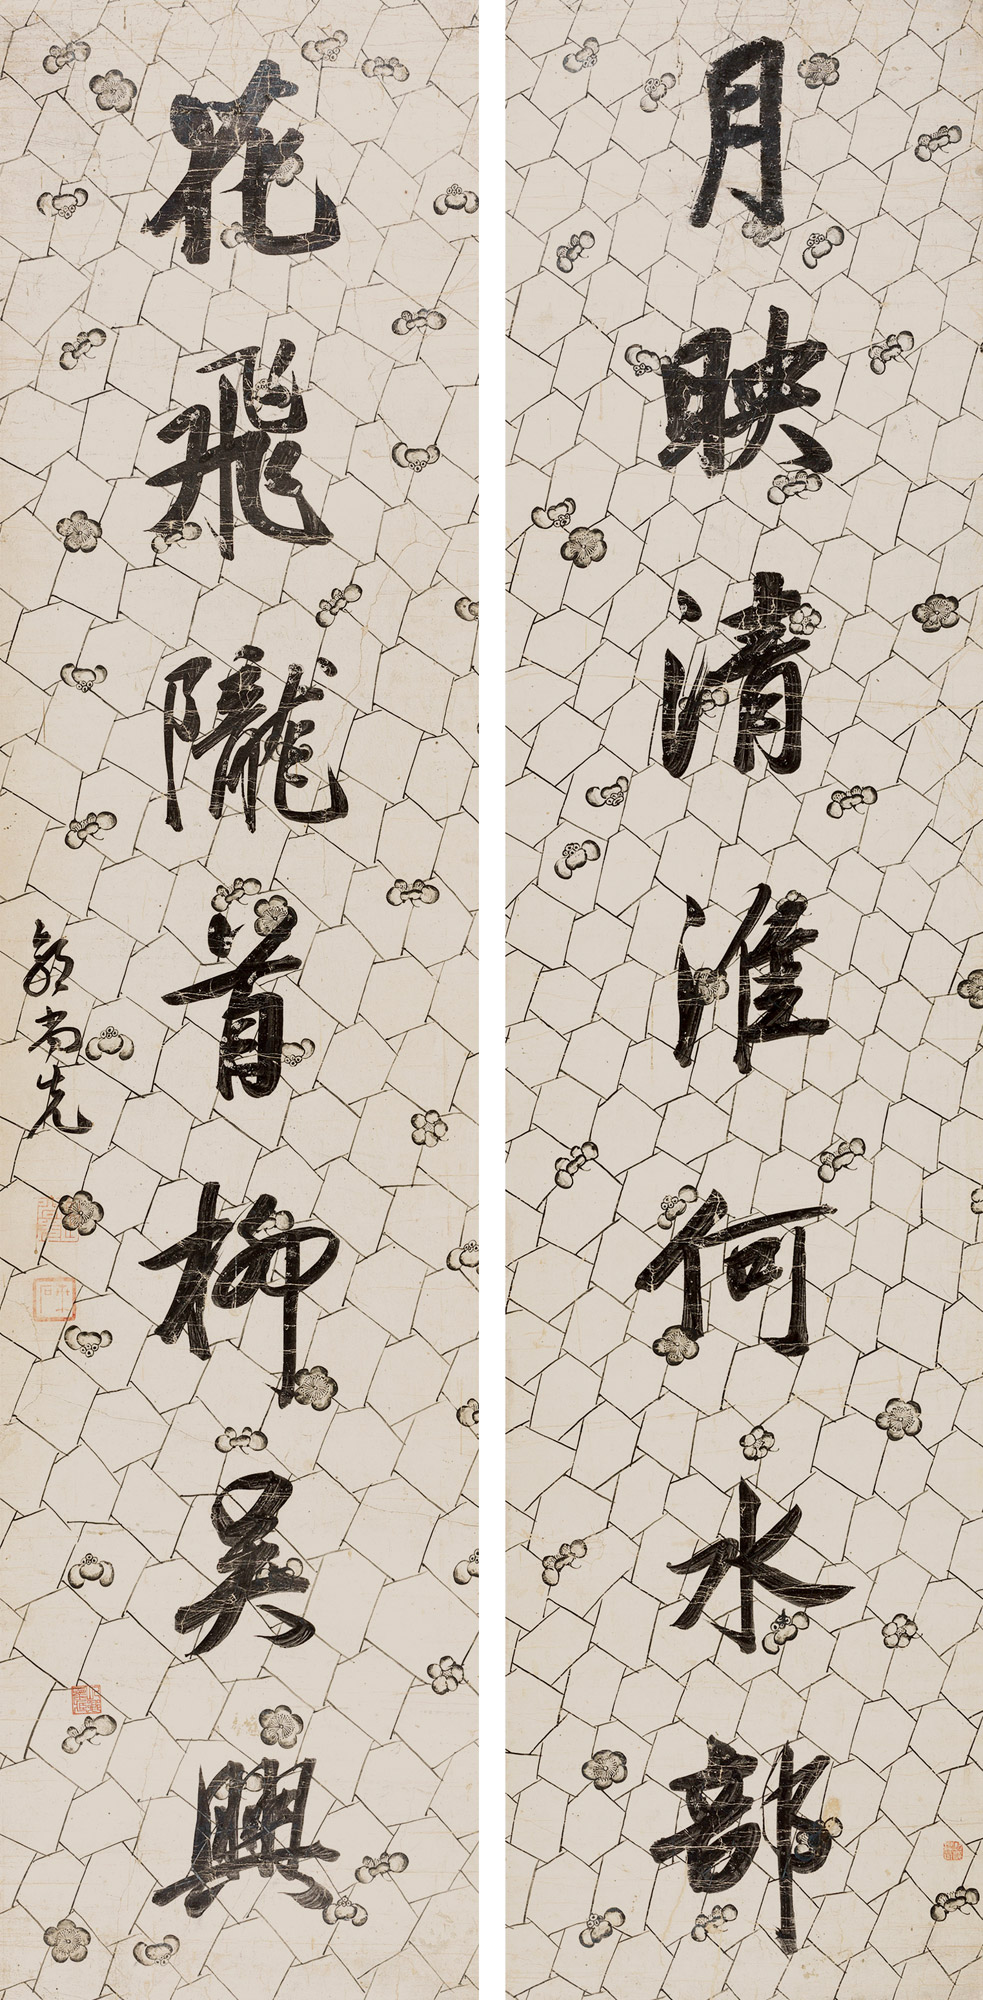 月映清淮何水部
花飛隴首柳吳興
郭尚先